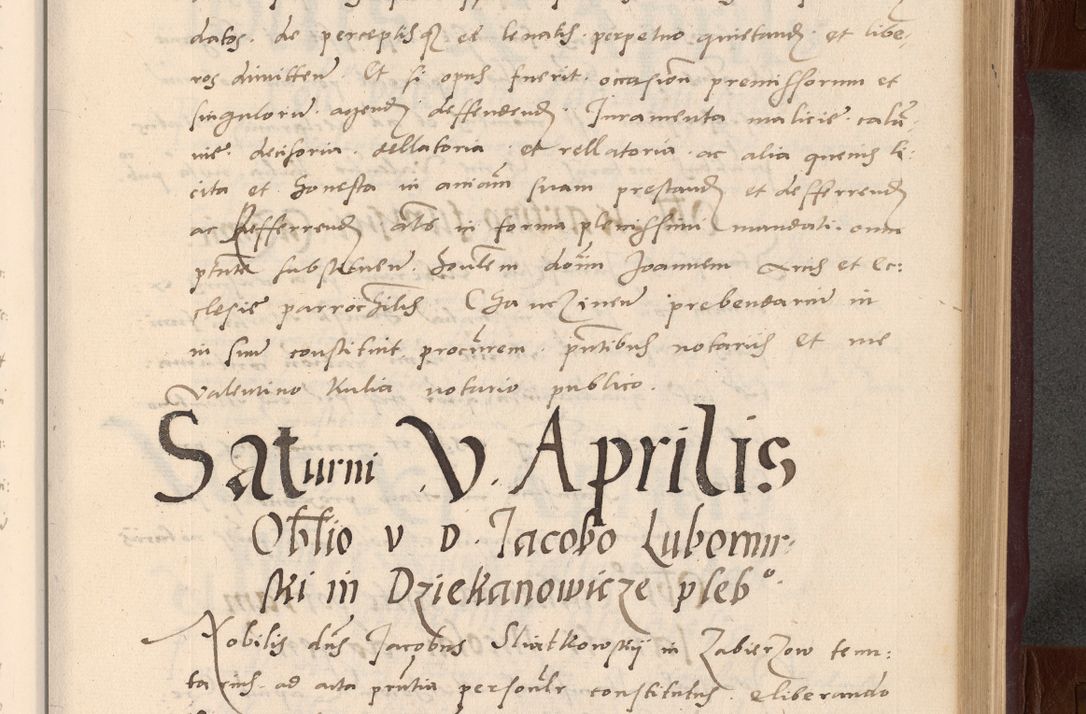 datos. de perceptisq3 et levatis. perpetuo quietand. et libe,
ros dimitten. Et si opus fuerit. occasion premissorum et
singulorum agend deffendend. Juramenta malicie. calu
nie. decisoria. dellatoria. et rellatoria. ac alia quevis li:
cita et honesta in aniam suam prestand et defferrend
ac Refferrend ats in forma plenissimi mandati. omni
ptate substituen. Honlem dnm Joannem Arcis et Ec:
clesie parrochilis prebendarium in
in suum constituit. procurem. pntibus notariis et me
Valentino Kulia notario publico.
Saturni V. Aprilis
Obltio v D. Jacobo Lubomir
ski in Dziekanowicze plebo.
Nobilis dns Jacobus Swiatkowskij in Zabierzow tenu:
tarius. ad acta pntia personlr constitutus. eliberando